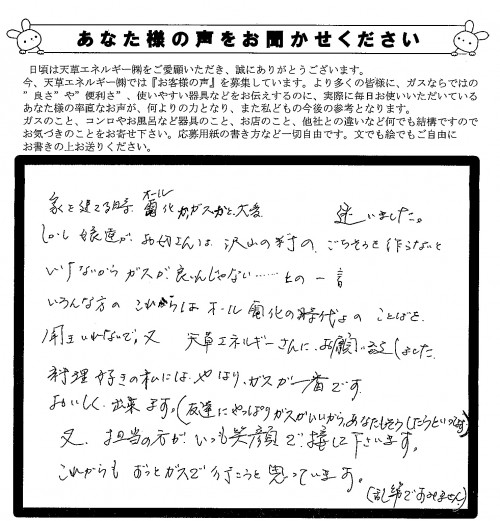 あなた様の声をお聞かせください
日頃は天草エネルギー㈱をご愛顧いただき、誠にありがとうございます。
今、天草エネルギー㈱では『お客様の声』を募集しています。より多くの皆様に、ガスならではの
"良さ"や"便利さ"、使いやすい器具などをお伝えするのに、実際に毎日お使いいただいている
あなた様の率直なお声が、何よりの力となり、また私どもの今後の参考となります。
ガスのこと、コンロやお風呂など器具のこと、お店のこと、他社との違いなど何でも結構ですので
お気づきのことをお寄せ下さい。応募用紙の書き方など一切自由です。文でも絵でもご自由に
お書きの上お送りください。
家を建てる時、オール電化かガスかと、大変 迷いました。
しかし娘達が、お母さんは、沢山の の、ごちそうを作らないと
いけないからガスが、良いんじゃない……との一言
いろんな方の これからはオール電化の時代よのことばを
用いれないで、又 天草エネルギーさんに、お願い致しました。
料理好きの私には、やはり、ガスが一番です。
おいしく、出来ます。(友達にやっぱりガスがいいから、あなたもそうしたらといってます)
又、担当の方が、いつも笑顔で、接して下さいます。
これからも ずっとガスで行こうと思っています。
(乱筆ですみません)